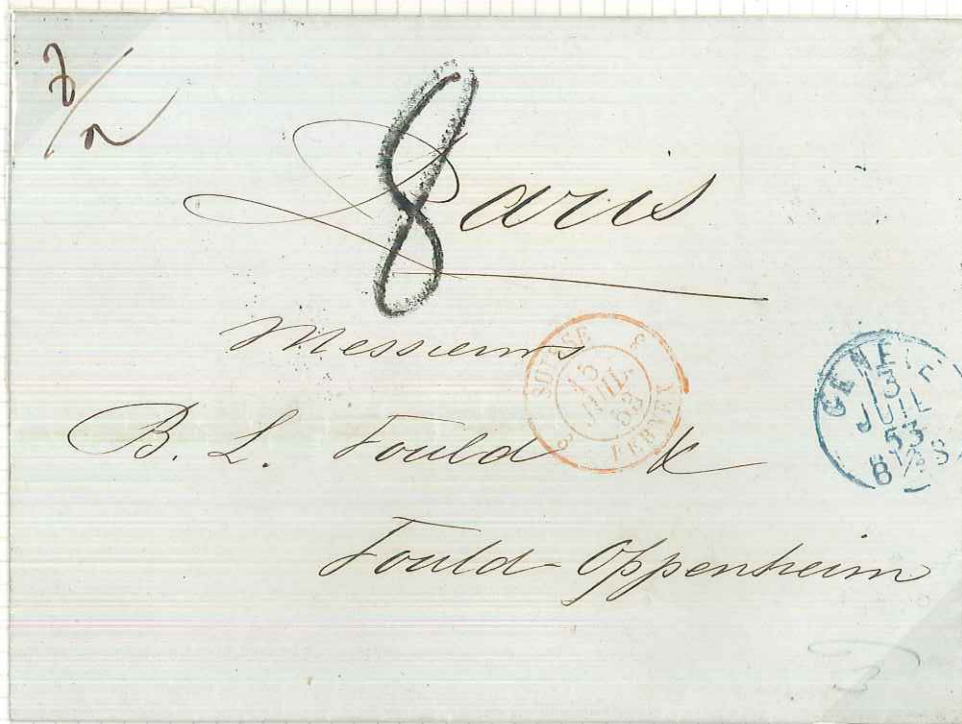 8
Paris
Messieurs
B. L. Fould &
Fould-Oppenheim
SUISSE
15
JUIL.
53
FERNEY
GENEVE
13
JUIL
53
8½S